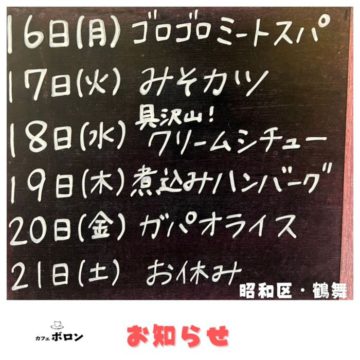 16日(月)ゴロゴロミートスパ
17日(火)みそカツ
具沢山!
18日(水)クリームシチュー
19日(木)煮込みハンバーグ
20日(金)ガパオライス
21日(土)お休み
昭和区・鶴舞
カフェ ボロン
お知らせ